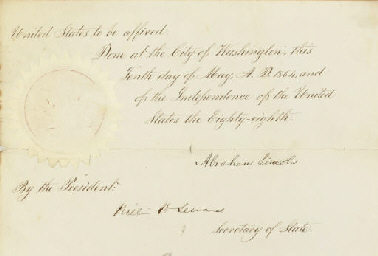 United States to be affixed.
Done at the City of Washington, this
Tenth day of May, A. D. 1864, and
of the Independence of the United
States the Eighty-eighth.
Abraham Lincoln
By the President:
Seward
Secretary of State.